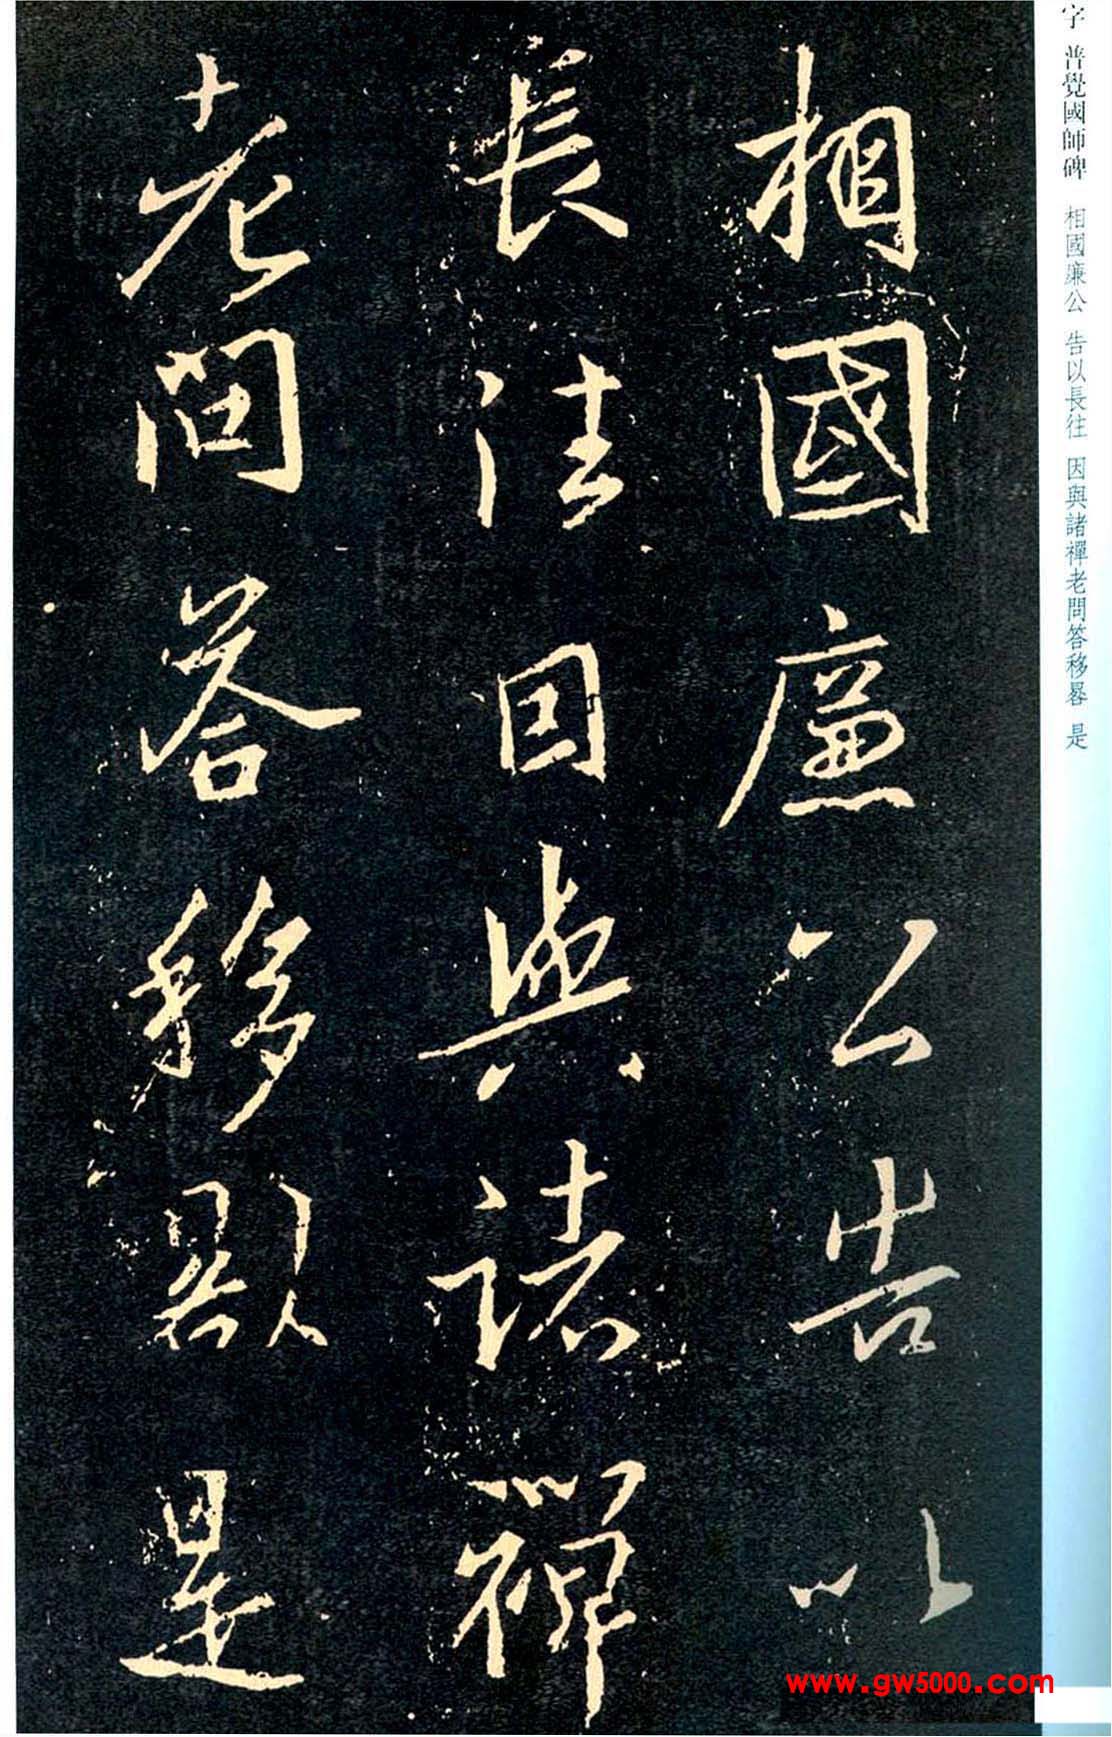 字 普覺國師碑 相國廉公 告以長往 因與諸禪老問答移晷 是
相國廉公告以
長往因與諸禪
老問答移晷是
www.gw5000.com